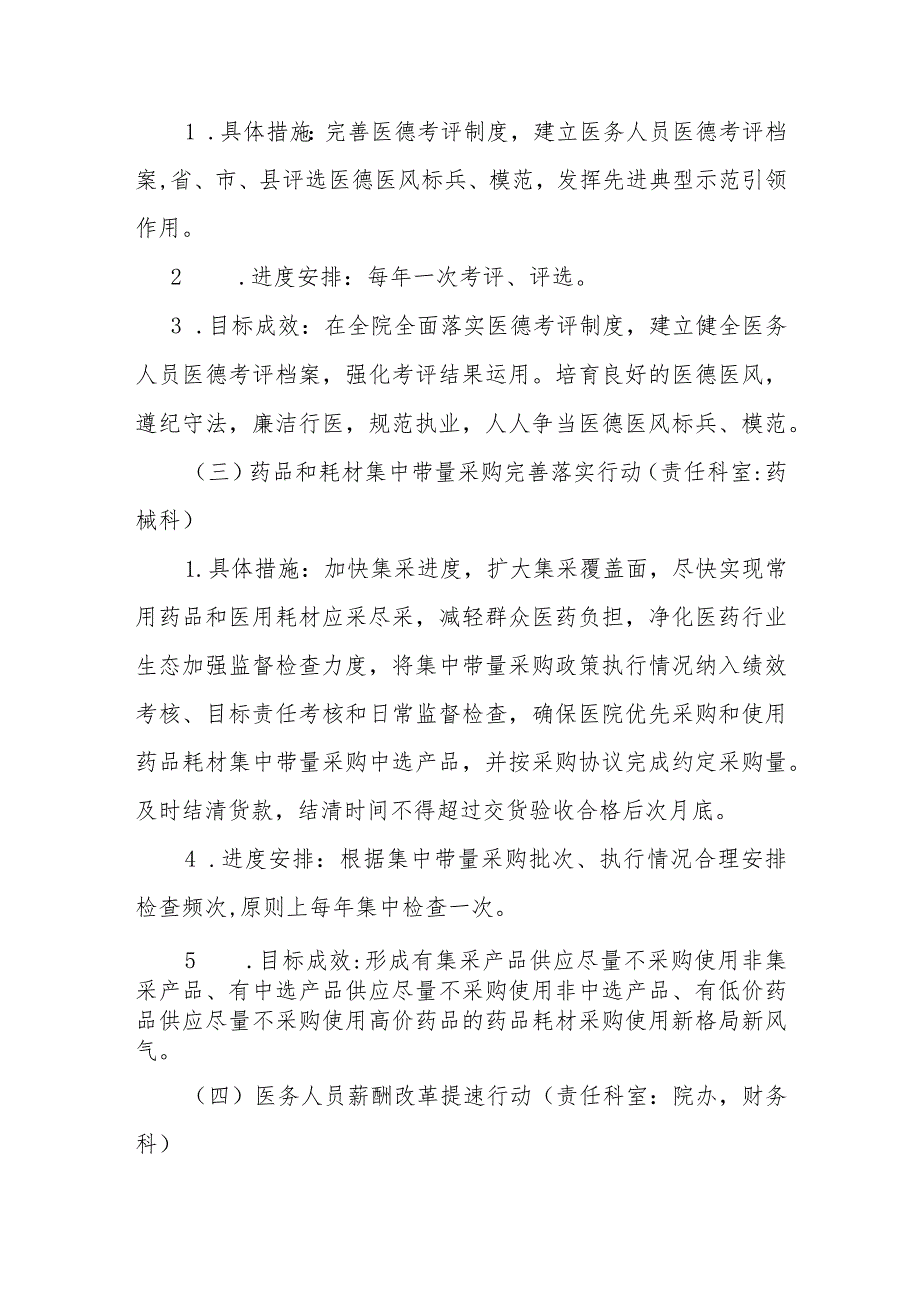 1.具体措施：完善医德考评制度，建立医务人员医德考评档
案,省、市、县评选医德医风标兵、模范，发挥先进典型示范引领
作用。
2 .进度安排：每年一次考评、评选。
3.目标成效：在全院全面落实医德考评制度，建立健全医务
人员医德考评档案，强化考评结果运用。培育良好的医德医风，
遵纪守法，廉洁行医，规范执业，人人争当医德医风标兵、模范。
（三）药品和耗材集中带量采购完善落实行动（责任科室:药
械科）
1.具体措施：加快集采进度，扩大集采覆盖面，尽快实现常
用药品和医用耗材应采尽采，减轻群众医药负担，净化医药行业
生态加强监督检查力度，将集中带量采购政策执行情况纳入绩效
考核、目标责任考核和日常监督检查，确保医院优先采购和使用
药品耗材集中带量采购中选产品，并按采购协议完成约定采购量。
及时结清货款，结清时间不得超过交货验收合格后次月底。
4.进度安排：根据集中带量采购批次、执行情况合理安排
检查频次,原则上每年集中检查一次。
5 .目标成效:形成有集采产品供应尽量不采购使用非集
采产品、有中选产品供应尽量不采购使用非中选产品、有低价药
品供应尽量不采购使用高价药品的药品耗材采购使用新格局新风
气。
（四）医务人员薪酬改革提速行动（责任科室：院办，财务
科）